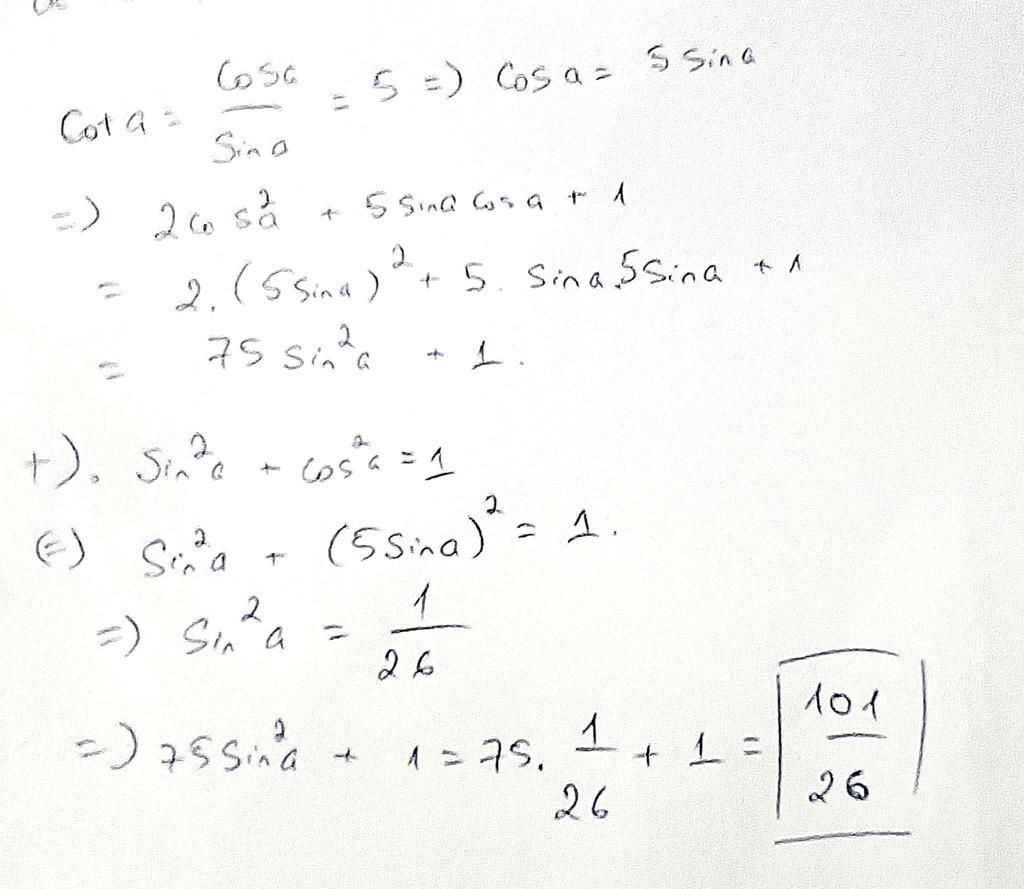 Cot a = Cos a / Sin a = 5 => Cos a = 5 Sin a
=) 2 cos²a + 5 sin a cos a + 1
= 2. (5 sin a)² + 5. Sin a. 5 Sin a + 1
= 75 sin²a + 1.
+). Sin²a + cos²a = 1
(=) Sin²a + (5 Sin a)² = 1.
=) Sin²a = 1 / 26
=) 75 Sin²a + 1 = 75. 1 / 26 + 1 = 101 / 26